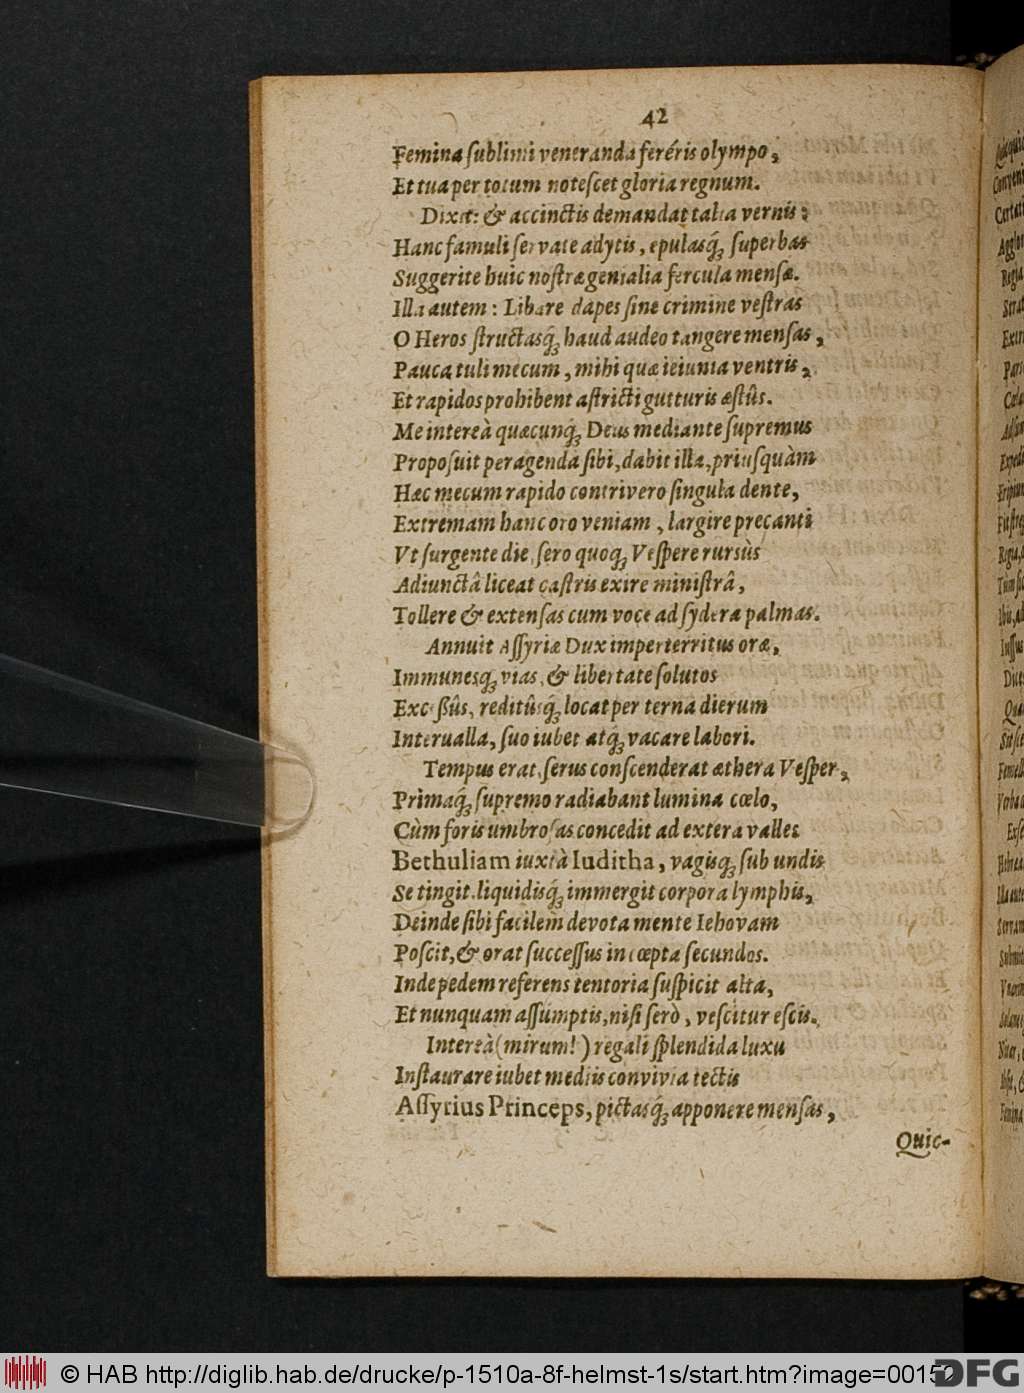 42
Femina sublimi veneranda feréris olympo,
Et tua per totum notescet gloria regnum.
Dixit: & accinctis demandat talia vernis:
Hanc famuli servate adytis, epulasq́; superbas
Suggerite huic nostræ genialia fercula mensæ.
Illa autem: Libare dapes sine crimine vestras
O Heros structasq́; haud audeo tangere mensas,
Pauca tuli mecum, mihi quæ ieiunia ventris,
Et rapidos prohibent astricti gutturis æstûs.
Me intereà quæcunq́; Deus mediante supremus
Proposuit peragenda sibi, dabit illa, priusquàm
Hæc mecum rapido contrivero singula dente,
Extremam hanc oro veniam, largire precanti
Vt surgente die, sero quoq́; Vespere rursùs
Adiunctâ liceat castris exire ministrâ,
Tollere & extensas cum voce ad sydera palmas.
Annuit Assyriæ Dux imperterritus oræ,
Immunesq́; vias, & libertate solutos
Excessûs, reditûsq́; locat per terna dierum
Interualla, suo iubet atq́; vacare labori.
Tempus erat, serus conscenderat æthera Vesper,
Primaq́; supremo radiabant lumina cœlo,
Cùm foris umbrosas concedit ad extera valles
Bethuliam iuxtà Iuditha, vagisq́; sub undis
Se tingit, liquidisq́; immergit corpora lymphis,
Deinde sibi facilem devota mente Iehovam
Poscit, & orat successus in cœpta secundos.
Inde pedem referens tentoria suspicit alta,
Et nunquam assumptis, nisi serò, vescitur escis.
Intereà (mirum!) regali splendida luxu
Instaurare iubet mediis convivia tectis
Assyrius Princeps, pictasq́; apponere mensas,
Quic-
© HAB http://diglib.hab.de/drucke/p-1510a-8f-helmst-1s/start.htm?image=00152
DFG